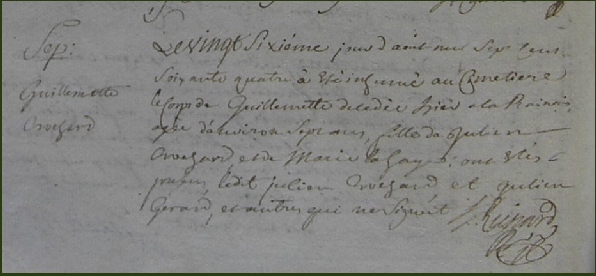 Sep:
Guillemette
Le vingt sixiéme jour d'aout mil sept cens
soixante quatre à été inhumé au Cimetiere
le corps de Guillemette decedée hier à la
agée d'environ sept ans, fille de Julien
et de Marie ont étés
presens ledit julien et julien
Gerard, et autres qui ne signent